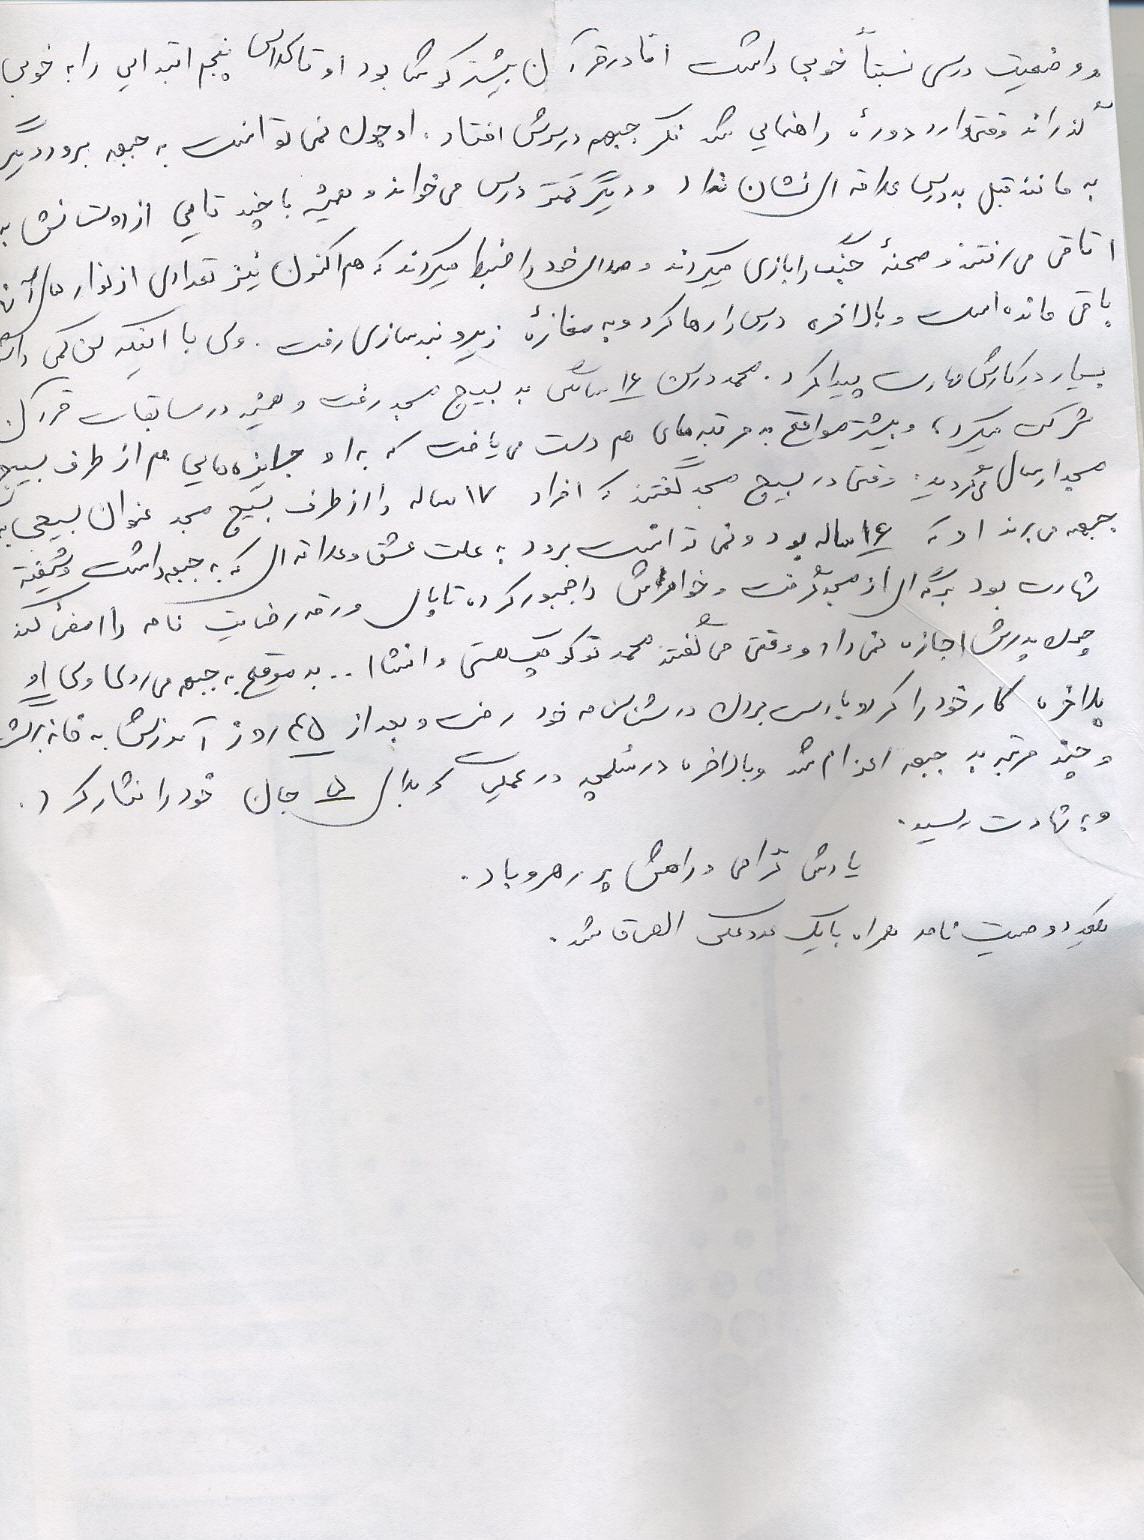 و وضعیت درسی نسبتاً خوبی داشت اما در قرآن بیشتر کوشا بود او تا کلاس پنجم ابتدایی را به خوبی
گذراند وقتی وارد دورهٔ راهنمایی شد فکر جبهه در سرش افتاد. او چون نمی توانست به جبهه برود دیگر
به مانند قبل به درس علاقه ای نشان نداد و دیگر کمتر درس می خواند و همیشه با چند تایی از دوستانش به
اتاقی می رفتند و صحنهٔ جنگ را بازی میکردند و صدای خود را ضبط میکردند که هم اکنون نیز تعدادی از نوار های آنها
باقی مانده است و بالاخره درس را رها کرد و به مغازهٔ زیروبند سازی رفت. ولی با اینکه سن کمی داشت
بسیار در کارش مهارت پیدا کرد. محمد در سن ۱۶ سالگی به بسیج مسجد رفت و همیشه در مسابقات قرآن
شرکت میکرد، و بیشتر مواقع به مرتبه های هم دست می یافت که به او جایزه هایی هم از طرف بسیج
مسجد ارسال می گردید. وقتی در بسیج مسجد گفتند که افراد ۱۷ ساله را از طرف بسیج مسجد عنوان بسیجی به
جبهه می برند او که ۱۶ ساله بود و نمی توانست برود به علت عشق و علاقه ای که به جبهه داشت و شیفته
شهادت بود برگه ای از مسجد گرفت و خواهرش را مجبور کرده تا پای ورقه رضایت نامه را امضاء کند
چون پدرش اجازه نمی داد و وقتی می گفتند محمد تو کوچک هستی و انشاا.. به موقع به جبهه می روی ولی او
بلاخره کار خود را کرد و با دست بردن در شناسنامه خود رفت و بعد از ۴۵ روز آموزش به خانه برگشت
و چند مرتبه به جبهه اعزام شد و بالاخره در شلمچه در عملیات کربلای ۵ جان خود را نثار کرد.
و به شهادت رسید.
یادش گرامی و راهش پر رهرو باد.
وصیت نامه همراه با یک عدد عکس الصاق شد.